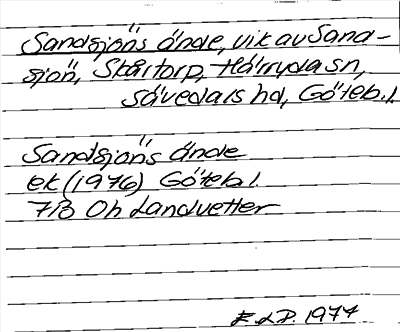 Sandsjöns ände, vik av Sand-
sjön, Skårtorp, Härryda sn,
Sävedals hd, Göteb. l.
Sandsjöns ände
ek (1976) Göteb l.
7B Oh Landvetter
1974